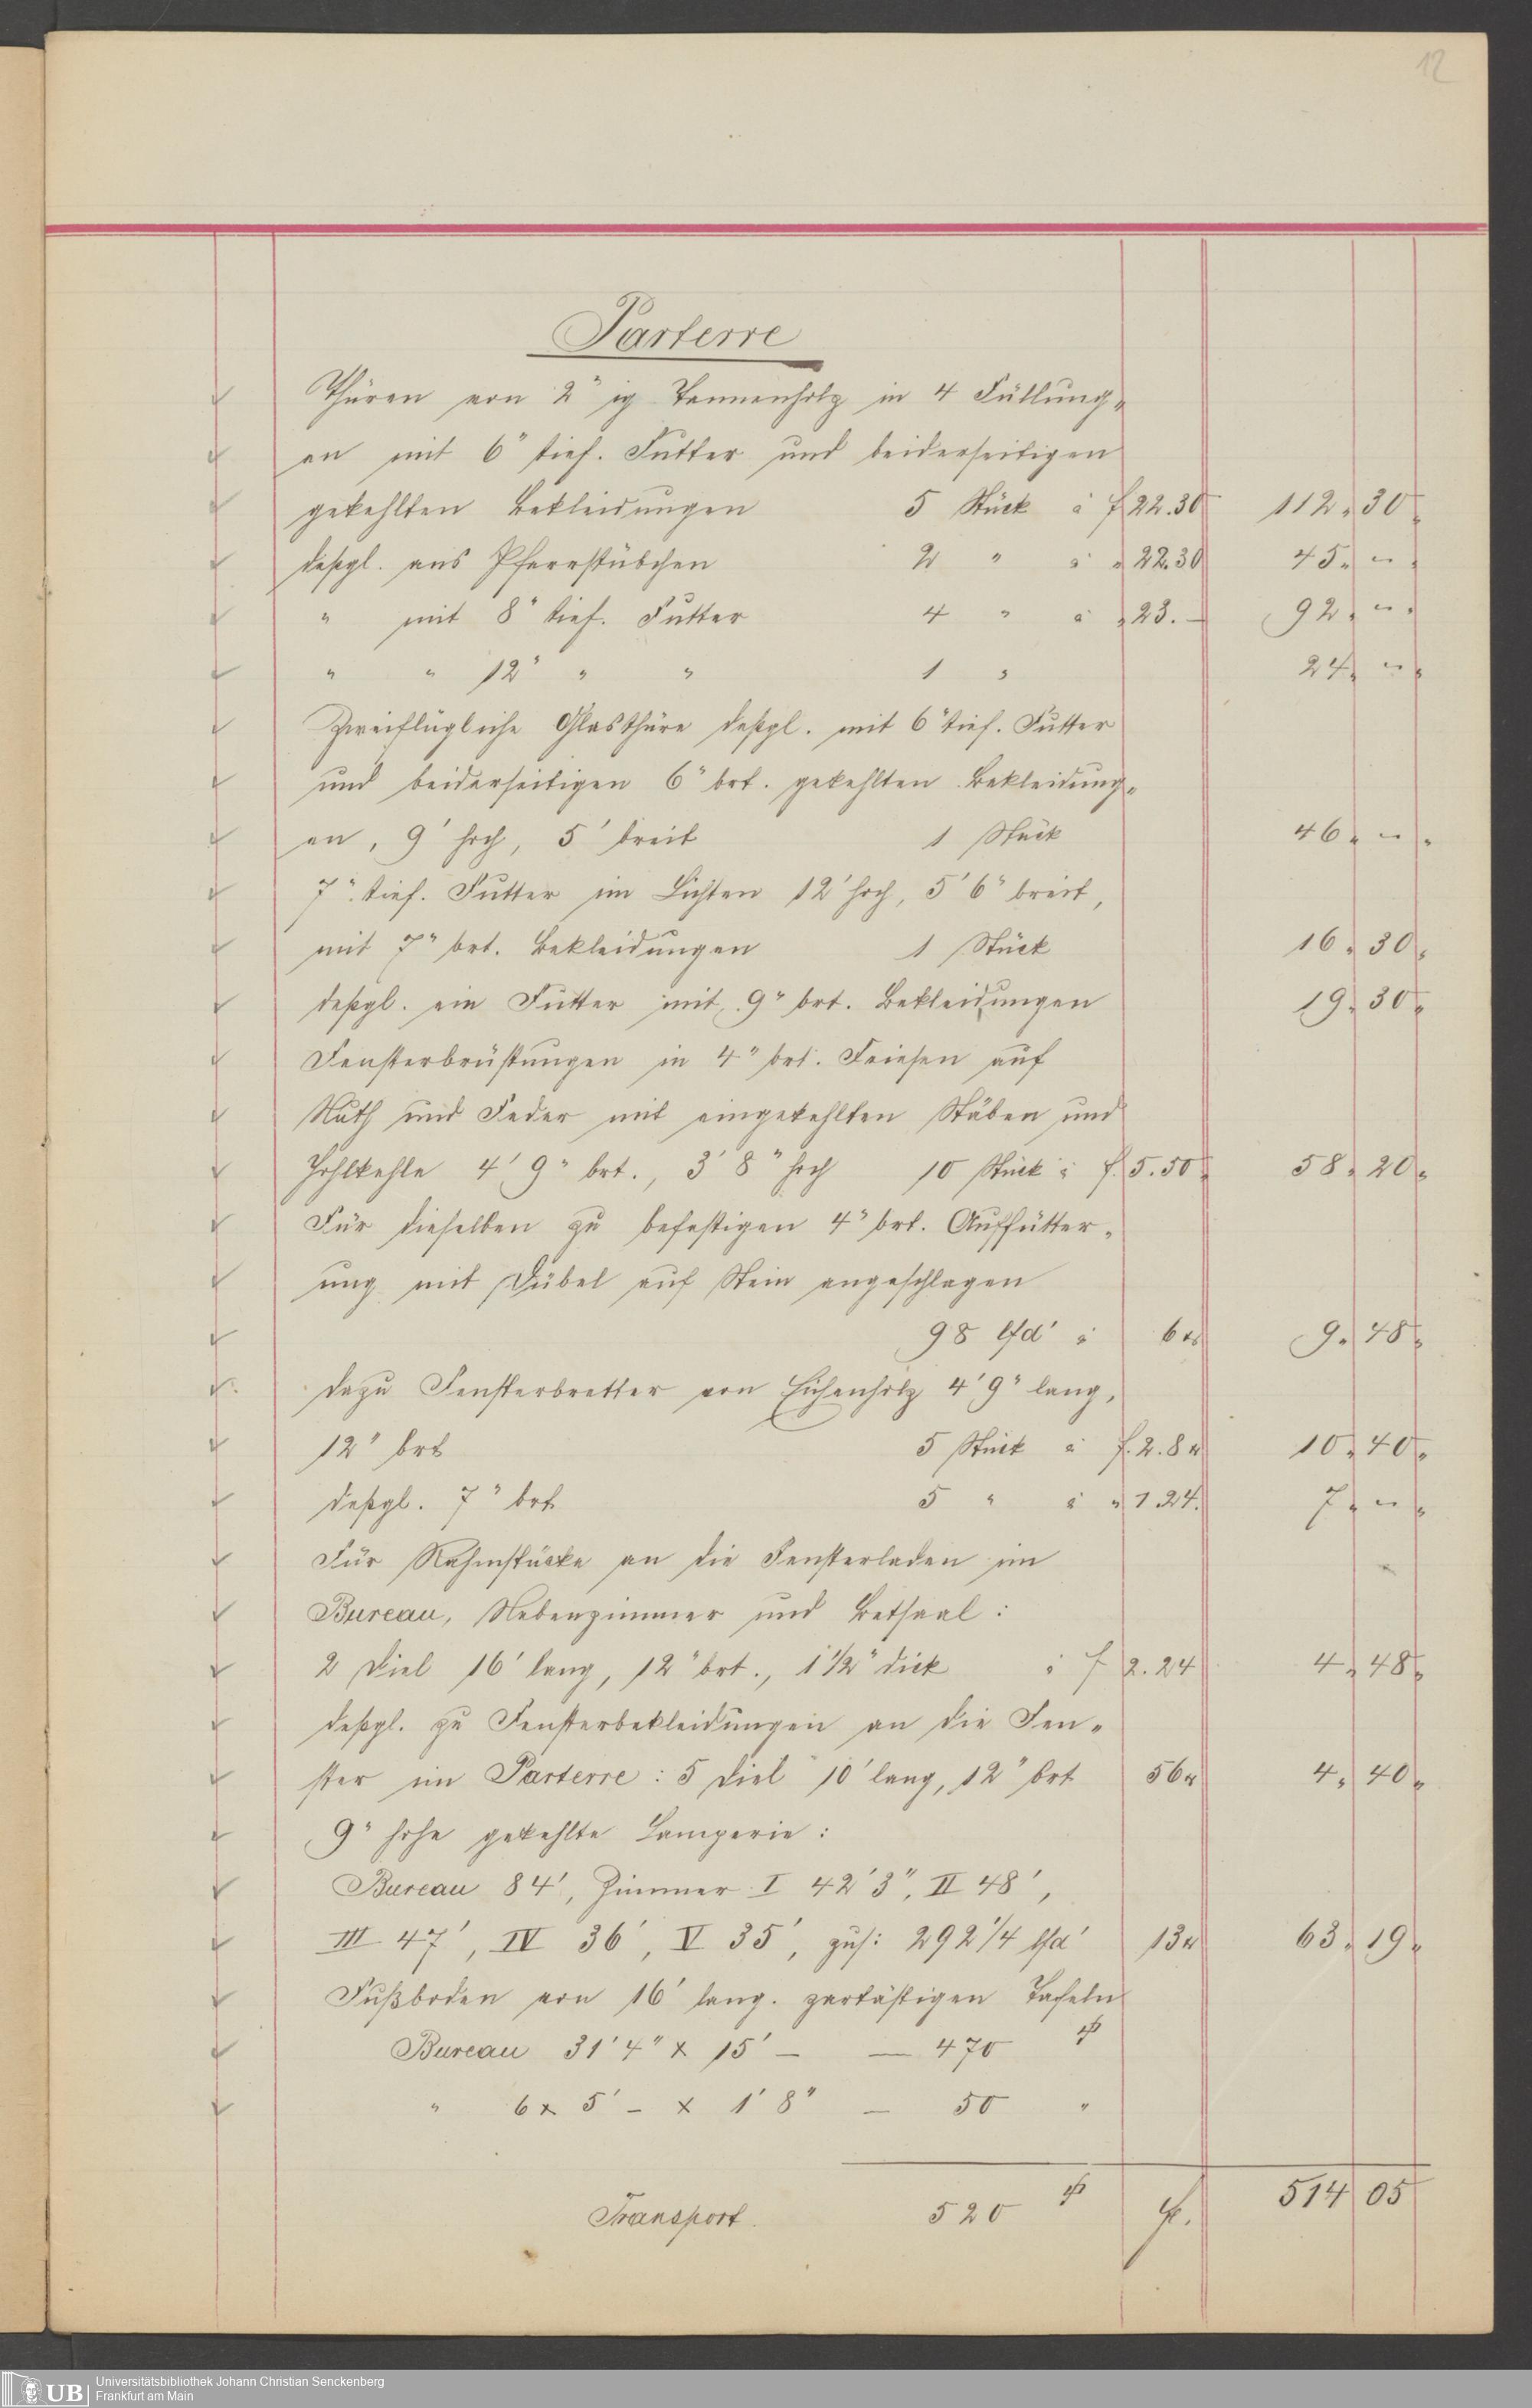 12
Parterre
Thüren von 2" ig Tannenholz in 4 Füllung=
en mit 6" tief. Futter und beiderseitigen
gekehlten Bekleidungen 5 Stück à f 22.30 112. 30
deßgl. ans Pfarrstübchen 2 " à " 22.30 45. "
" mit 8" tief. Futter 4 " à " 23. – 92. "
" " 12" " " 1 " 24. "
Zweiflügliche Glasthüre deßgl. mit 6" tief. Futter
und beiderseitigen 6" brt. gekehlten Bekleidung=
en, 9' hoch, 5' breit 1 Stück 46. "
7" tief. Futter im Lichten 12' hoch, 5' 6" breit,
mit 7" brt. Bekleidungen 1 Stück 16. 30
deßgl. ein Futter mit 9" brt. Bekleidungen 19. 30
Fensterbrüstungen in 4" brt. Friesen auf
Nuth und Feder mit eingekehlten Stäben und
Hohlkehle 4' 9" brt., 3' 8" hoch 10 Stück à f. 5.50 58. 20
Für dieselben zu befestigen 4" brt. Auffütter=
ung mit Dübel auf Stein angeschlagen
98 lfd' à 6 x 9. 48
dazu Fensterbretter von Eichenholz 4' 9" lang,
12" brt 5 Stück à f. 2.8 x 10. 40
deßgl. 7" brt 5 " à " 1.24. 7. "
Für Rahmstücke an die Fensterladen im
Bureau, Nebenzimmer und Betsaal:
2 Diel 16' lang, 12" brt., 1 1/2" dick à f 2.24 4. 48
deßgl. zu Fensterbekleidungen an die Fen=
ster im Parterre: 5 Diel 10' lang, 12" brt 56 x 4. 40
9" hohe gekehlte Lamperie:
Bureau 84', Zimmer I 42' 3", II 48',
III 47', IV 36', V 35', zus: 292 1/4 lfd' 13 x 63. 19
Fußboden von 16' lang. Tafeln
Bureau 31' 4" x 15' – — 470
" 6 x 5' – x 1' 8" — 50 "
Transport. 520 f. 514 05
UB Universitätsbibliothek Johann Christian Senckenberg
Frankfurt am Main